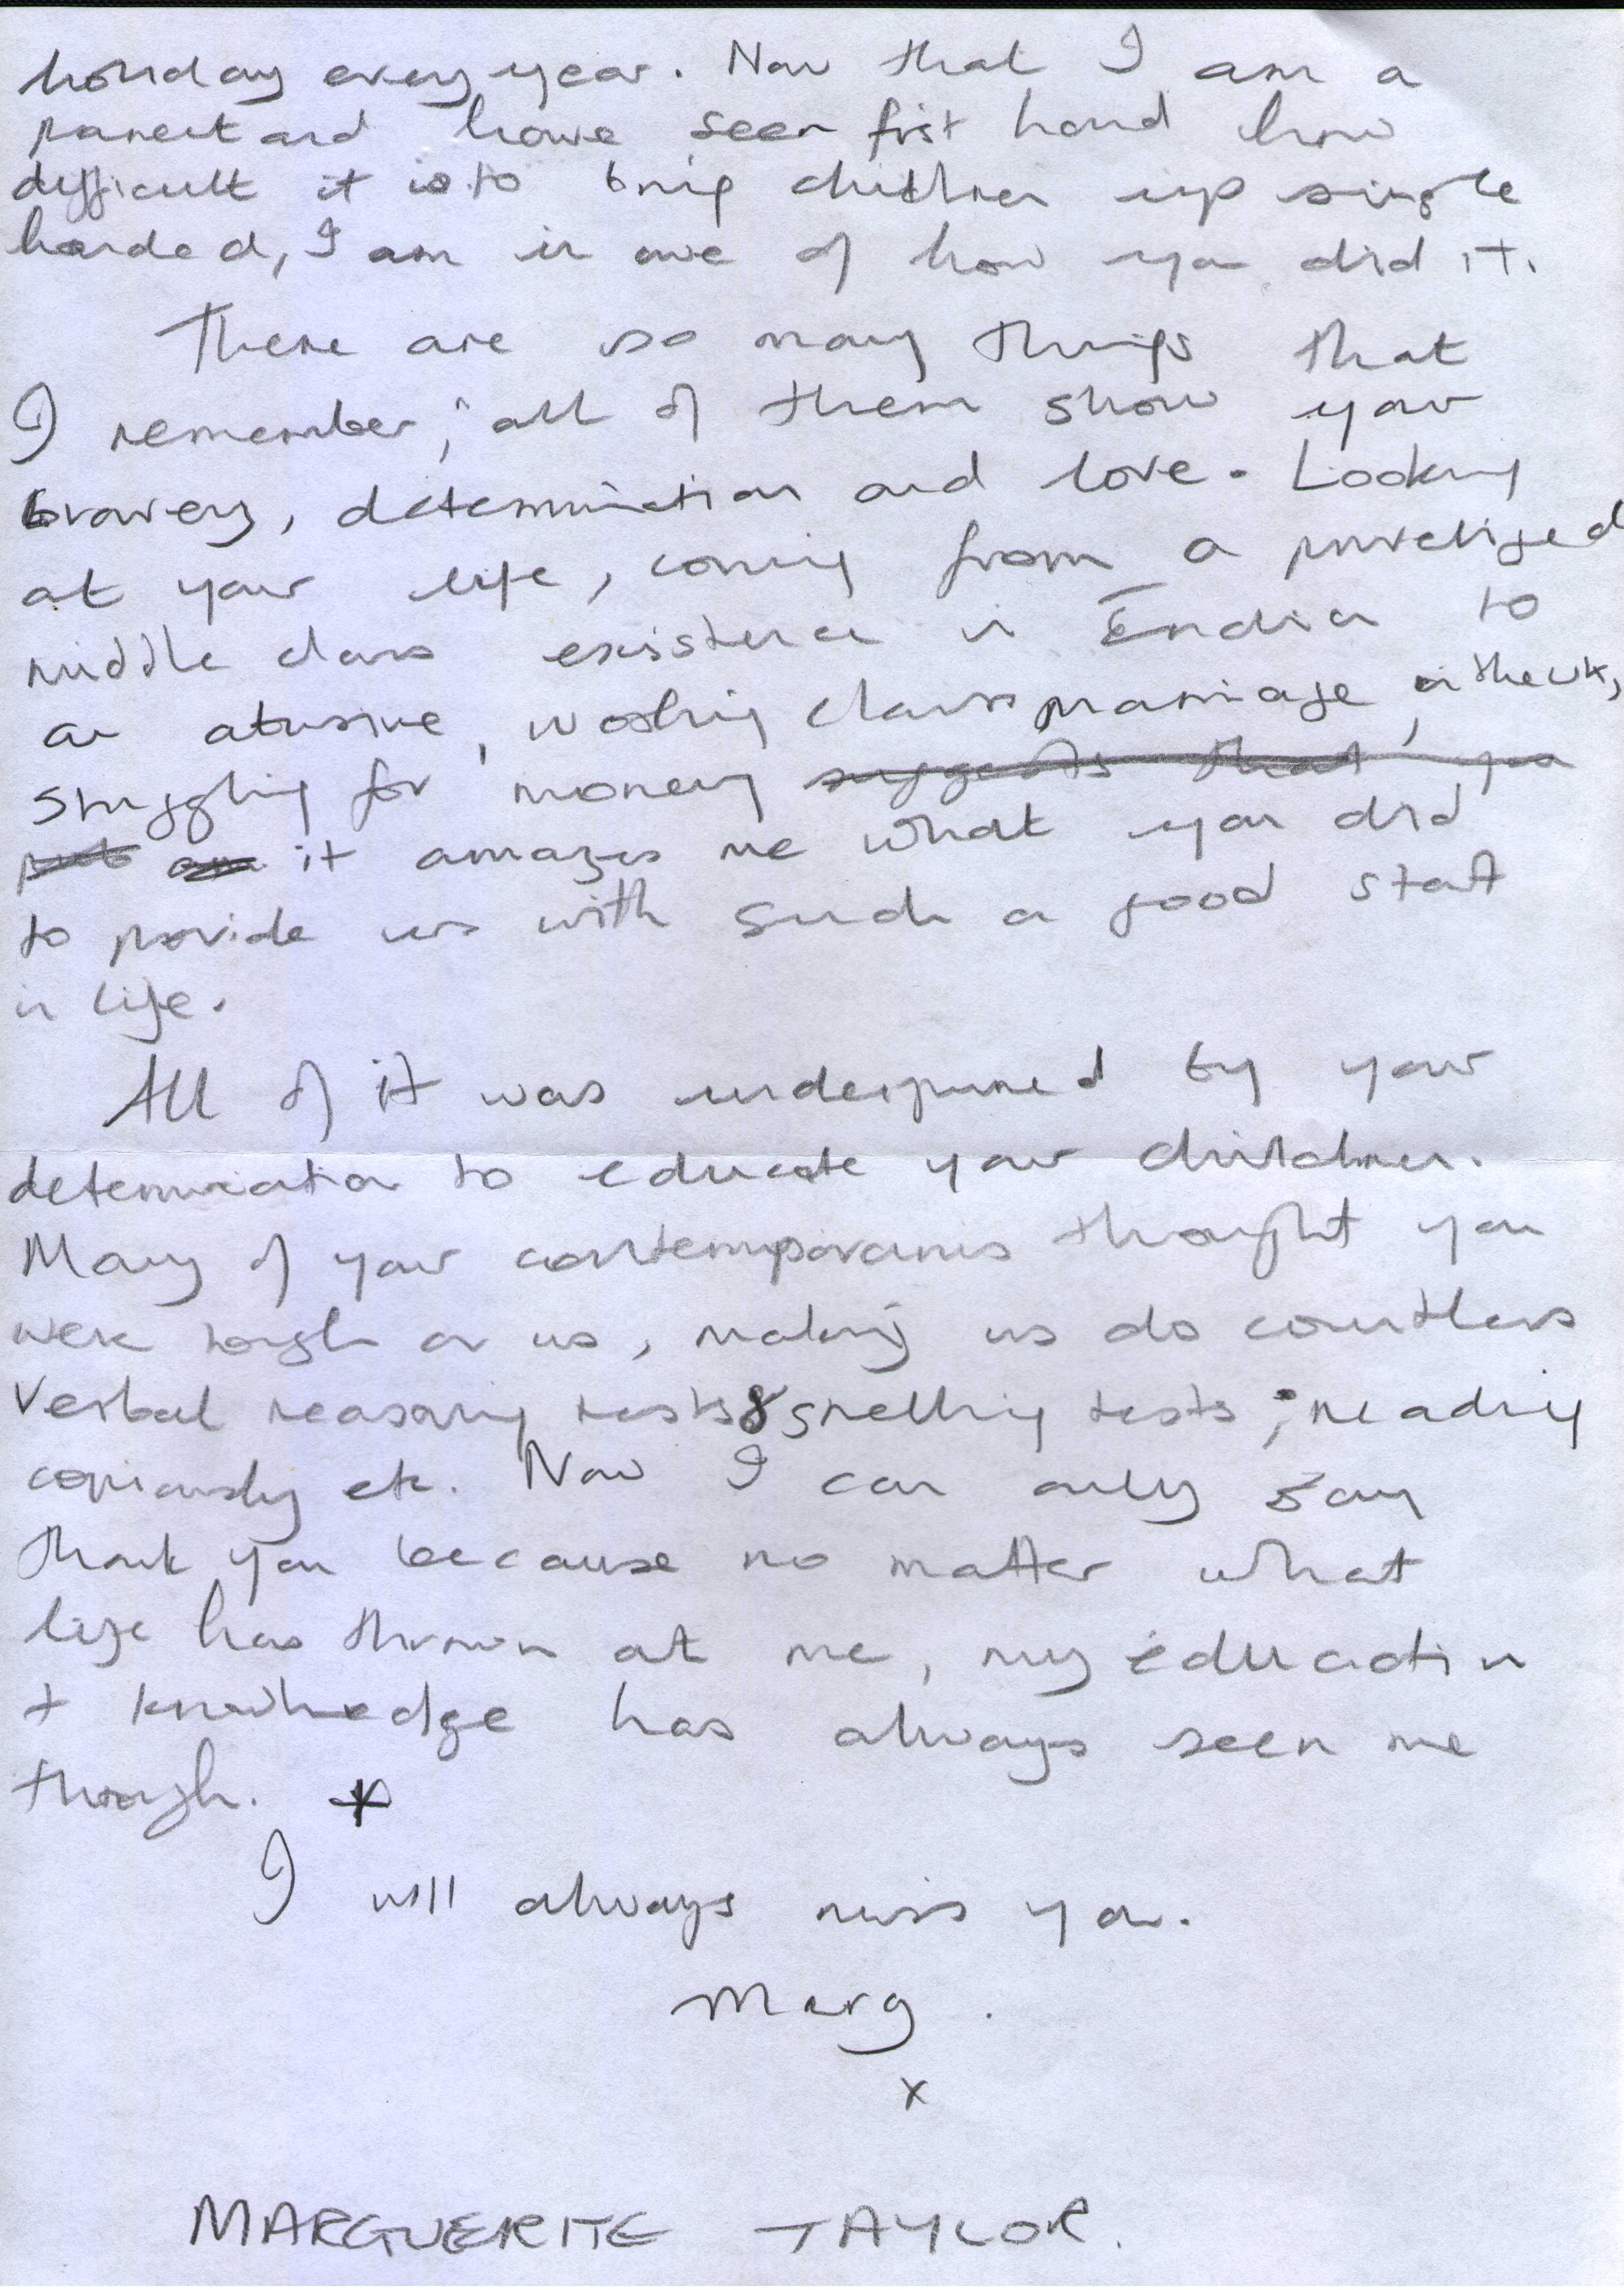 holiday every year. Now that I am a
parent and have seen first hand how
difficult it is to bring children up single
handed, I am in awe of how you did it.
There are so many things that
I remember; all of them show your
bravery, determination and love. Looking
at your life, coming from a priveliged
middle class existence in India to
an abusive, working class marriage, in the UK,
struggling for money suggests that you
it amazes me what you did
to provide us with such a good start
in life.
All of it was underpinned by your
determination to educate your children.
Many of your contemporaries thought you
were tough on us, making us do countless
verbal reasoning tests & spelling tests; reading
copiously etc. Now I can only say
thank you because no matter what
life has thrown at me, my education
+ knowledge has always seen me
through. *
I will always miss you.
Marg.
x
MARGUERITE TAYLOR.